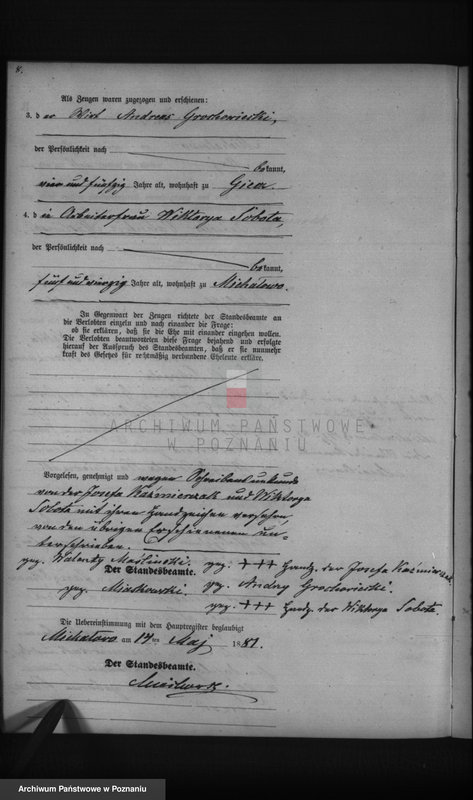 8.
Als Zeugen waren zugezogen und erschienen:
3. der Wirt Andreas Grochowiecki,
der Persönlichkeit nach
bekannt,
vier und fünfzig Jahre alt, wohnhaft zu Giecz
4. die Arbeiterfrau Wiktorya Sobota,
der Persönlichkeit nach
bekannt,
fünf und vierzig Jahre alt, wohnhaft zu Michalowo.
In Gegenwart der Zeugen richtete der Standesbeamte an
die Verlobten einzeln und nach einander die Frage:
ob sie erklären, daß sie die Ehe mit einander eingehen wollen.
Die Verlobten beantworteten diese Frage bejahend und erfolgte
hierauf der Ausspruch des Standesbeamten, daß er sie nunmehr
kraft des Gesetzes für rechtmäßig verbundene Eheleute erkläre.
ARCHIWUM PAŃSTWOWE
W POZNANIU
Vorgelesen, genehmigt und wegen Schreibensunkunde
von der Josefa Kaźmierczak und Wiktorya
Sobota mit ihren Handzeichen versehen,
von den übrigen Erschienenen un-
terschrieben.
gez. Walenty gez. +++ Handz. der Josefa Kaźmierczak.
Der Standesbeamte. gez. Andrzy Grochowiecki.
gez. gez. +++ Handz. der Wiktorya Sobota.
Die Uebereinstimmung mit dem Hauptregister beglaubigt
Michalowo am 14ten Maj 1881.
Der Standesbeamte.
Archiwum Państwowe w Poznaniu